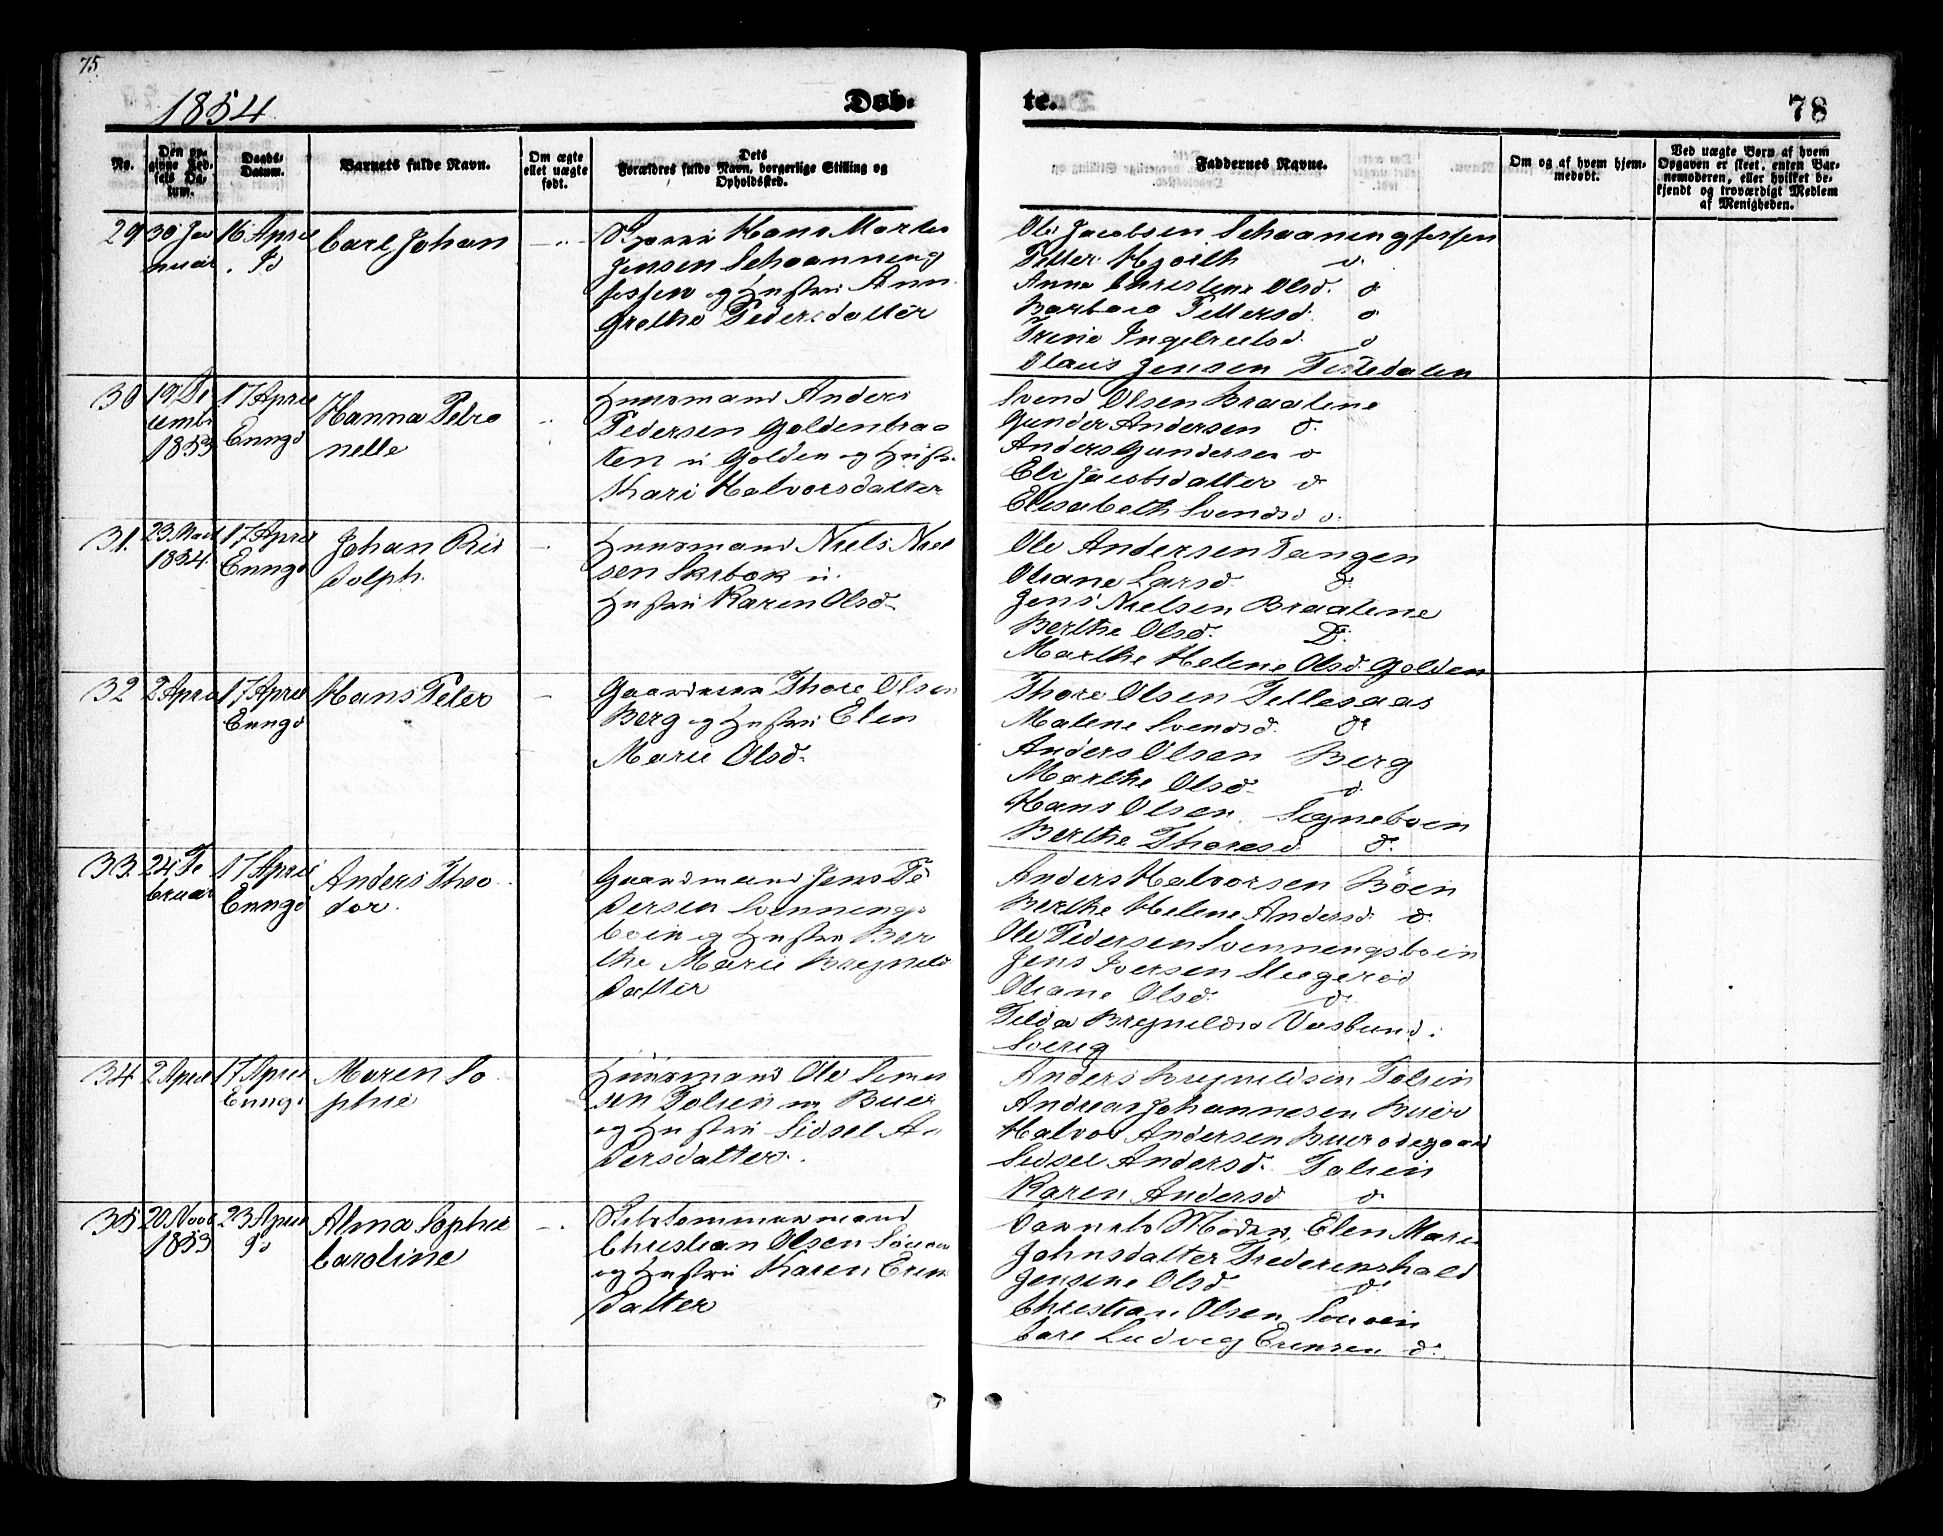 75.
1854.
Døb-
te.
78
No.
Den opgivne Fødsels Datum.
Daabs-Datum.
Barnets fulde Navn.
Om ægte eller uægte født.
Dets Forældres fulde Navn, borgerlige Stilling og Opholdssted.
Faddernes Navne.
Om og af hvem hjemmedøbt.
Ved uægte Børn af hvem Opgaven er skeet, enten Barnemoderen, eller hvilket bekjendt og troværdigt Medlem af Menigheden.
29
30 Januar
16 April
Carl Johan
Hans Martin
Jensen Schaanning
fossen og Hustru Ann
Grethe Pedersdatter
Ole Jacobsen Schaaningfossen
Petter Hjorth d.
Anne Christine Olsd. d.
Barbara Pettersd. d.
Trine Ingebretsd. d.
Olaus Jensen Tistedalen
30
19 De
cembr
1853
17 April
Enngd
Hanna Petro
nelle
Huusmand Anders
Pedersen Goldenbraa
ten u Golden og Hustr.
Kari Halvorsdatter
Svend Olsen Braatene
Gunder Andersen d.
Anders Gundersen d
Eli Jacobsdatter d.
Elisabeth Svendsd d.
31.
23 Mart
1854.
17 April
Enngd
Johan Ru
dolph.
Huusmand Niels Niel
sen Skrbæk u.
Hustru Karen Olsd.
Ole Andersen Tangen
Oliane Larsd. d.
Jens Nielsen Braatene
Berthe Olsd. D.
Marthe Helene Olsd. Golden
32
2 April
17 April
Enngd
Hans Peter
Gaardmand Thore Olsen
Berg og Hustru Elen
Marie Olsd.
Thore Olsen Tellesaas
Malene Svendsd. d.
Anders Olsen Berg
Marthe Olsd. d.
Hans Olsen Signeboen
Berthe Thoresd. d.
33.
24 Fe
bruar
17 April
Enngd
Anders Theo
dor.
Gaardmand Jens Pe
dersen Svennings
boen og Hustru Ber
the Marie Brynild
datter
Anders Halvorsen Böen
Berthe Helene Andersd. d.
Ole Pedersen Svenningsboen
Jens Iversen Stegerød
Oliane Olsd. d.
Tilda Brynildsd
Sverig
34
2 April
17 April
Enngd
Maren So
phie
Huusmand Ole Simen
sen Folsin u Buer
og Hustru Sidsel An
dersdatter.
Anders Brynildsen
Andreas Johannesen Buer
Halvor Andersen Buer odegaard
Sidsel Andersd.
Karen Andersd d.
35
20 Novb
1853
23 April
Alma Sophie
Caroline
Skibstømmermand
Christian Olsen
og Hustru Karen
datter
Barnets Moder, Elen Marie
Johnsdatter Frederikshald
Jensine Olsd. d.
Christian Olsen
Carl Ludvig d.